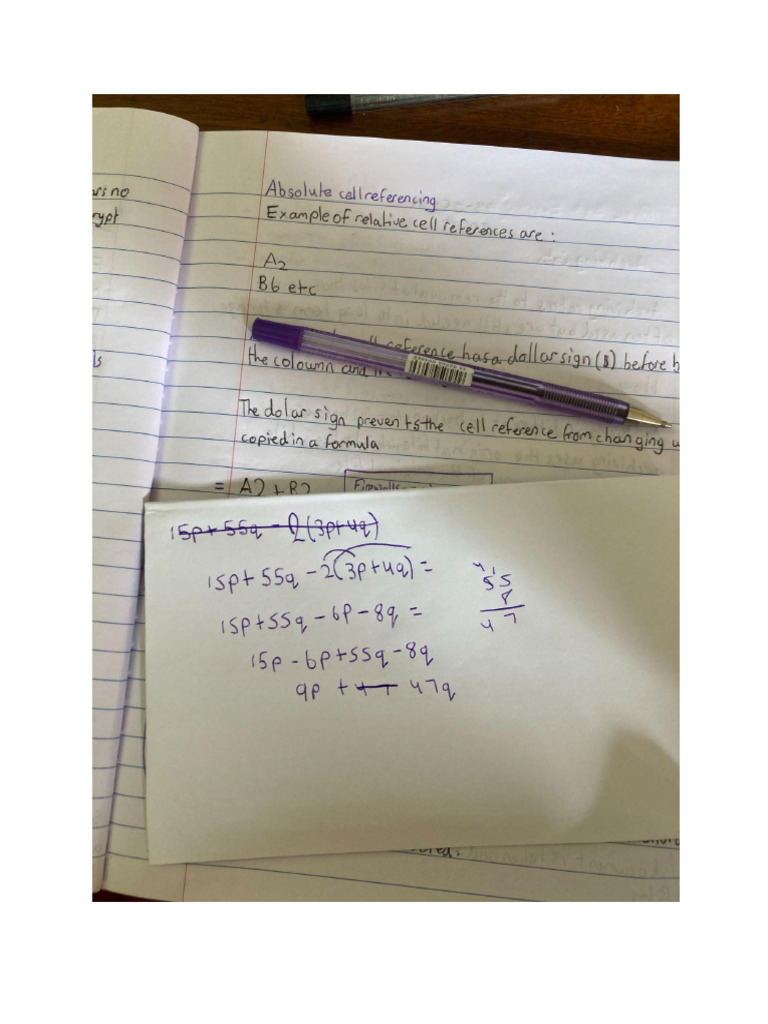 Absolute cell referencing
Example of relative cell references are:
A2
B6 etc
cell reference has a dollar sign ($) before
the colown and
The dolar sign prevents the cell reference from changing
copied in a formula
= A2 + B2
15p + 55q - 2(3p+4q)
15p + 55q - 2(3p+4q) =
15p + 55q - 6p - 8q =
15p - 6p + 55q - 8q
9p + 47q
4 1
55
8
47